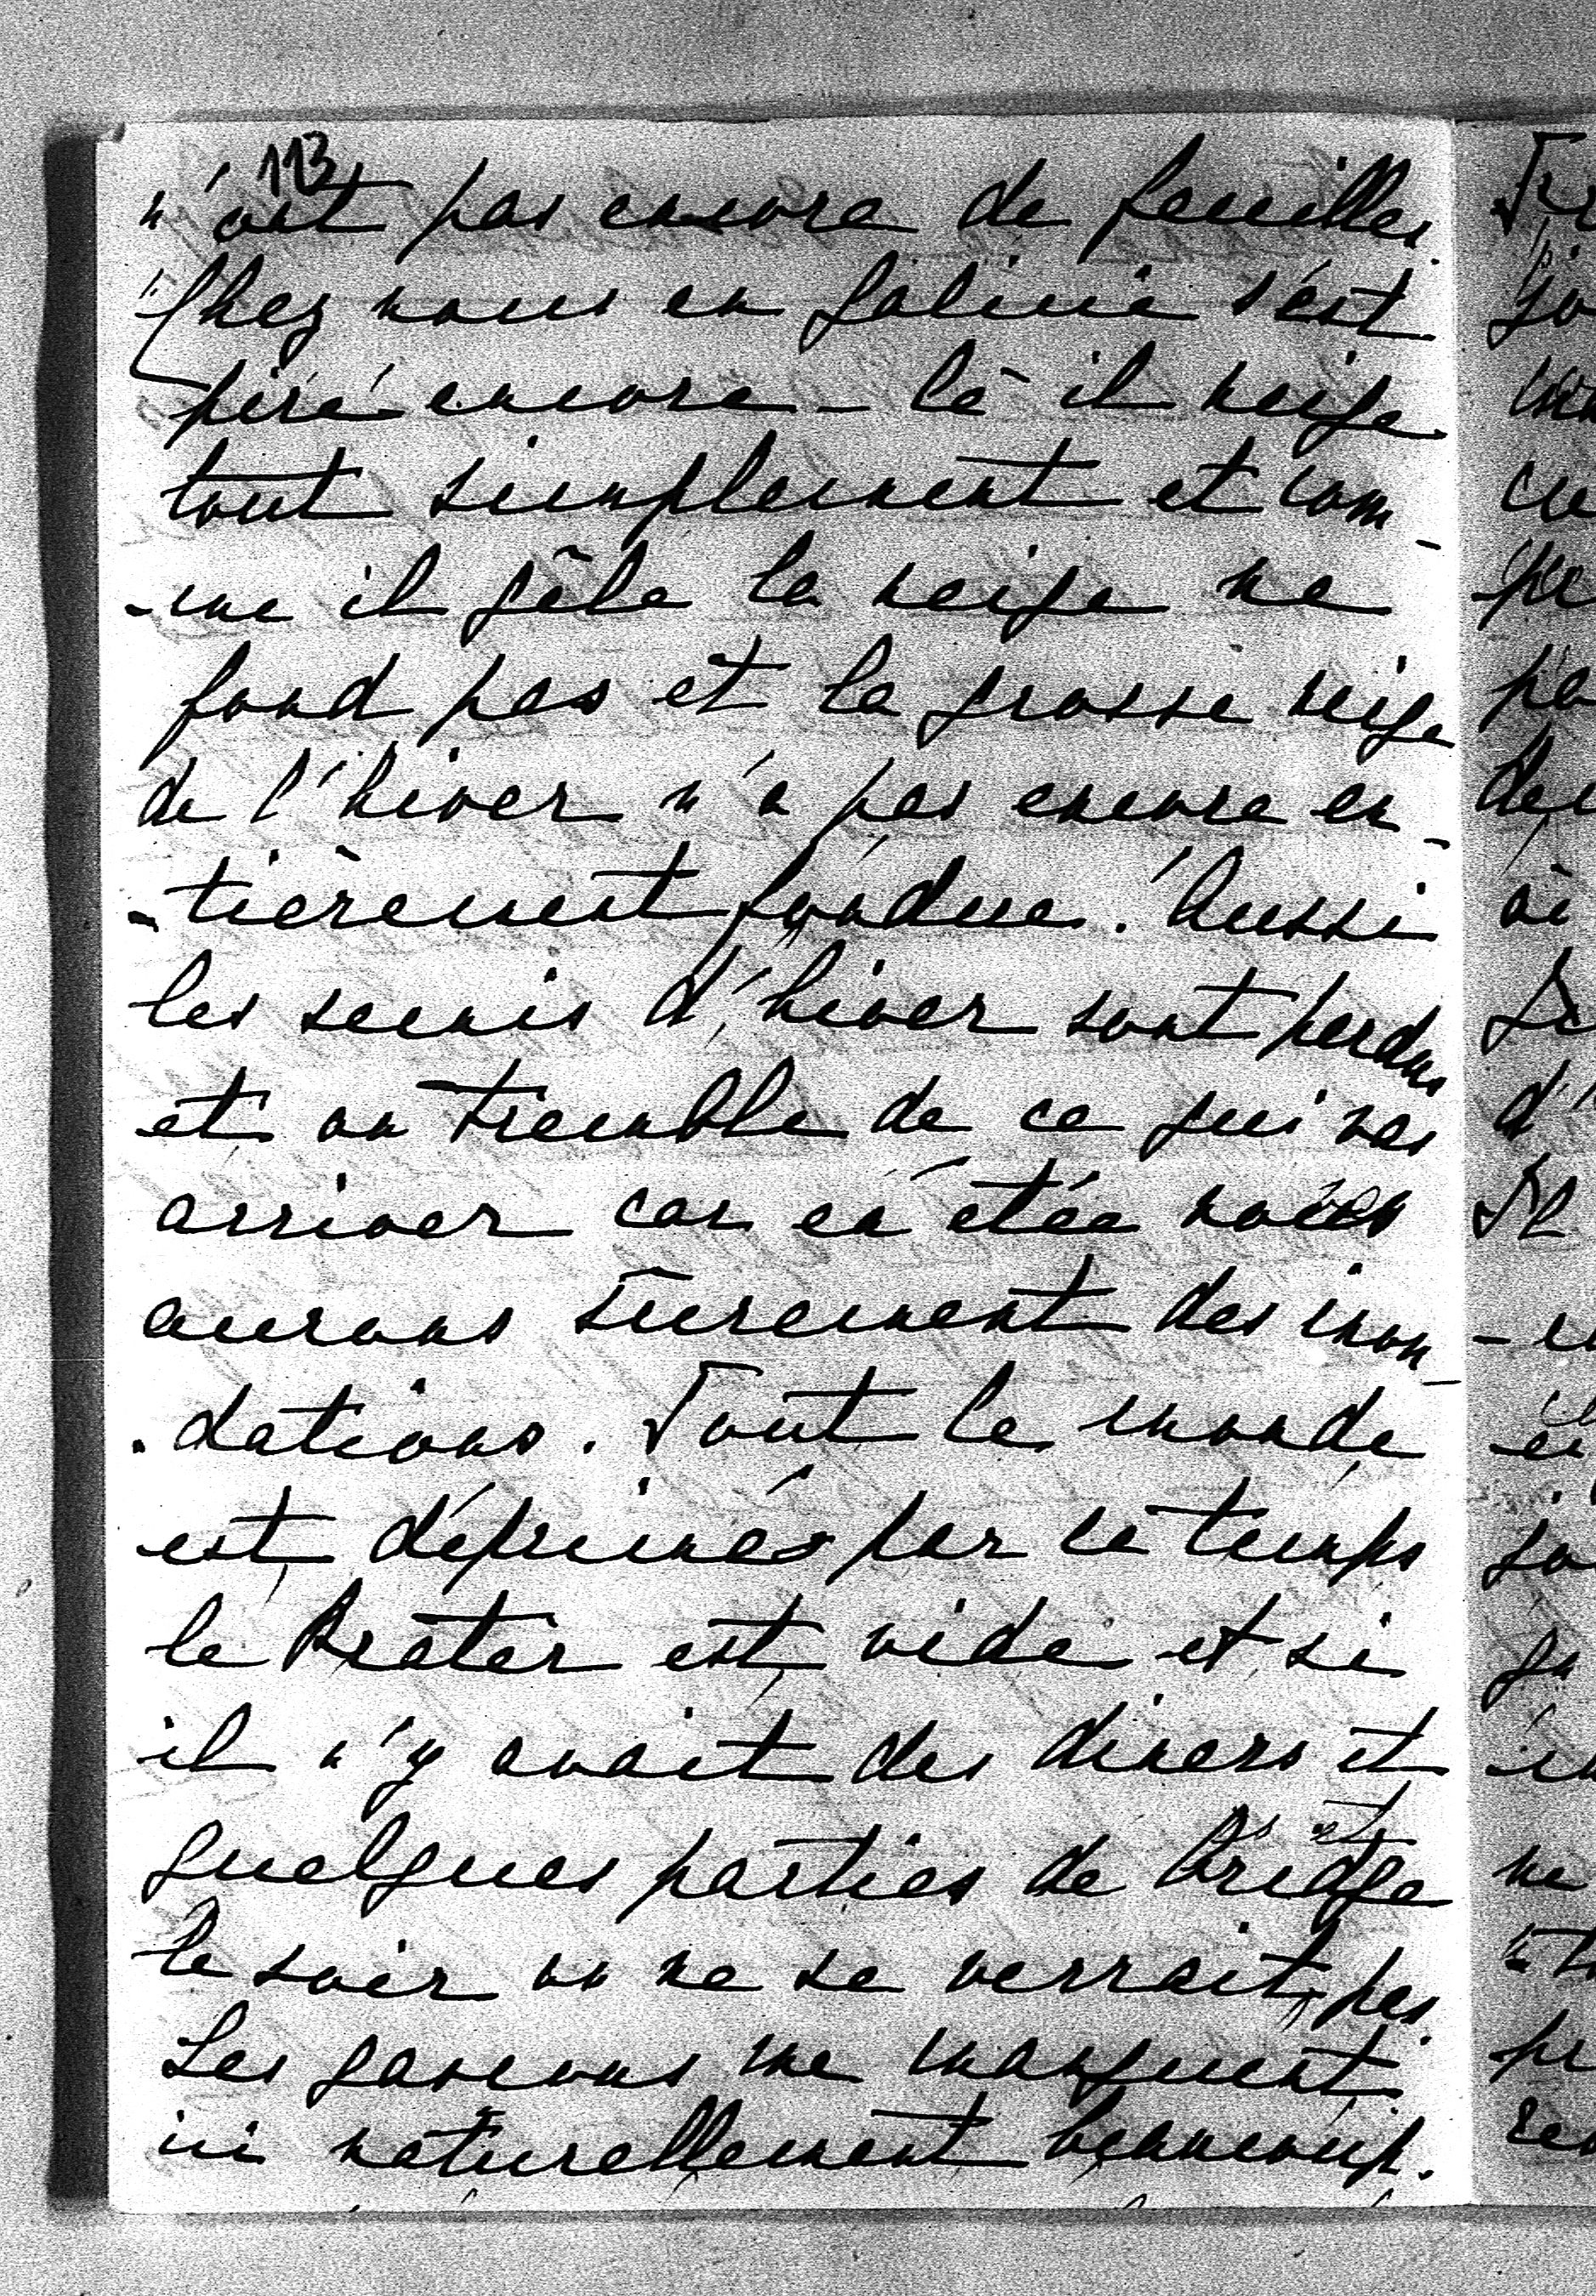 113
n'ont pas encore de feuilles.
Chez nous en Galicie s'est
piré encore - là il neige
tout simplement et com-
-me il gêle la neige ne
fond pas et la grosse neige
de l'hiver n'a pas encore en-
-tièrement fondue. Aussi
les semis d'hiver sont perdus
et on tremble de ce qui vas
arriver car en étée nous
aurons surement des inon-
-dations. Tout le monde
est déprimés par ce temps
le Prater est vide et si
il n'y avait des diners et
quelques parties de Bridge
le soir on ne se verrait pas.
Les garcons me manquent
ici naturellement beaucoup.